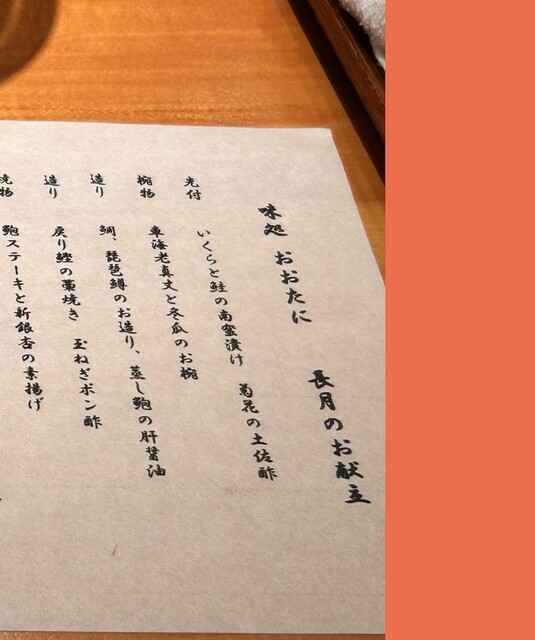 長月のお献立
味処 おおたに
先付
いくらと鮭の南蛮漬け 菊花の土佐酢
椀物
車海老真丈と冬瓜のお椀
造り
鯛、琵琶鱒のお造り、蒸し鮑の肝醤油
造り
戻り鰹の藁焼き 玉ねぎポン酢
焼物
鮑ステーキと新銀杏の素揚げ